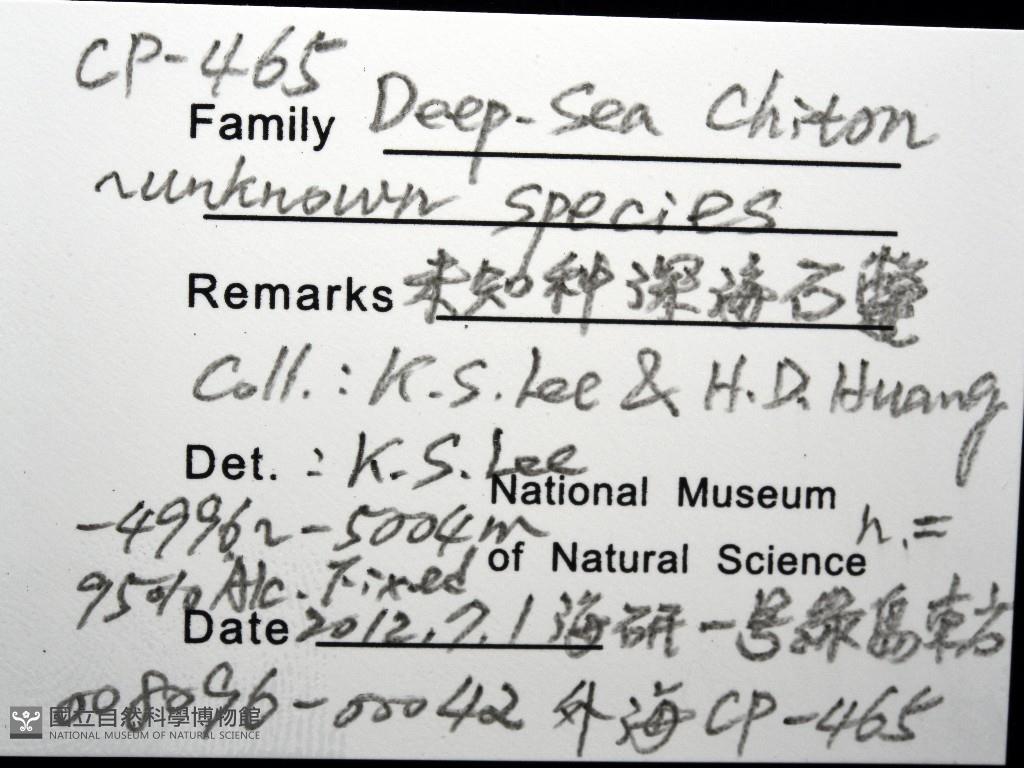 CP-465
Family Deep-Sea Chiton
~unknown species
Remarks 未知种深海石鱉
Coll.: K.S. Lee & H.D. Huang
Det. : K.S. Lee
National Museum
-4996~-5004m n.=
of Natural Science
95% Alc. Fixed
Date 2012.7.1 海研一号綠島東方
008096-00042 外海 CP-465
國立自然科學博物館
NATIONAL MUSEUM OF NATURAL SCIENCE